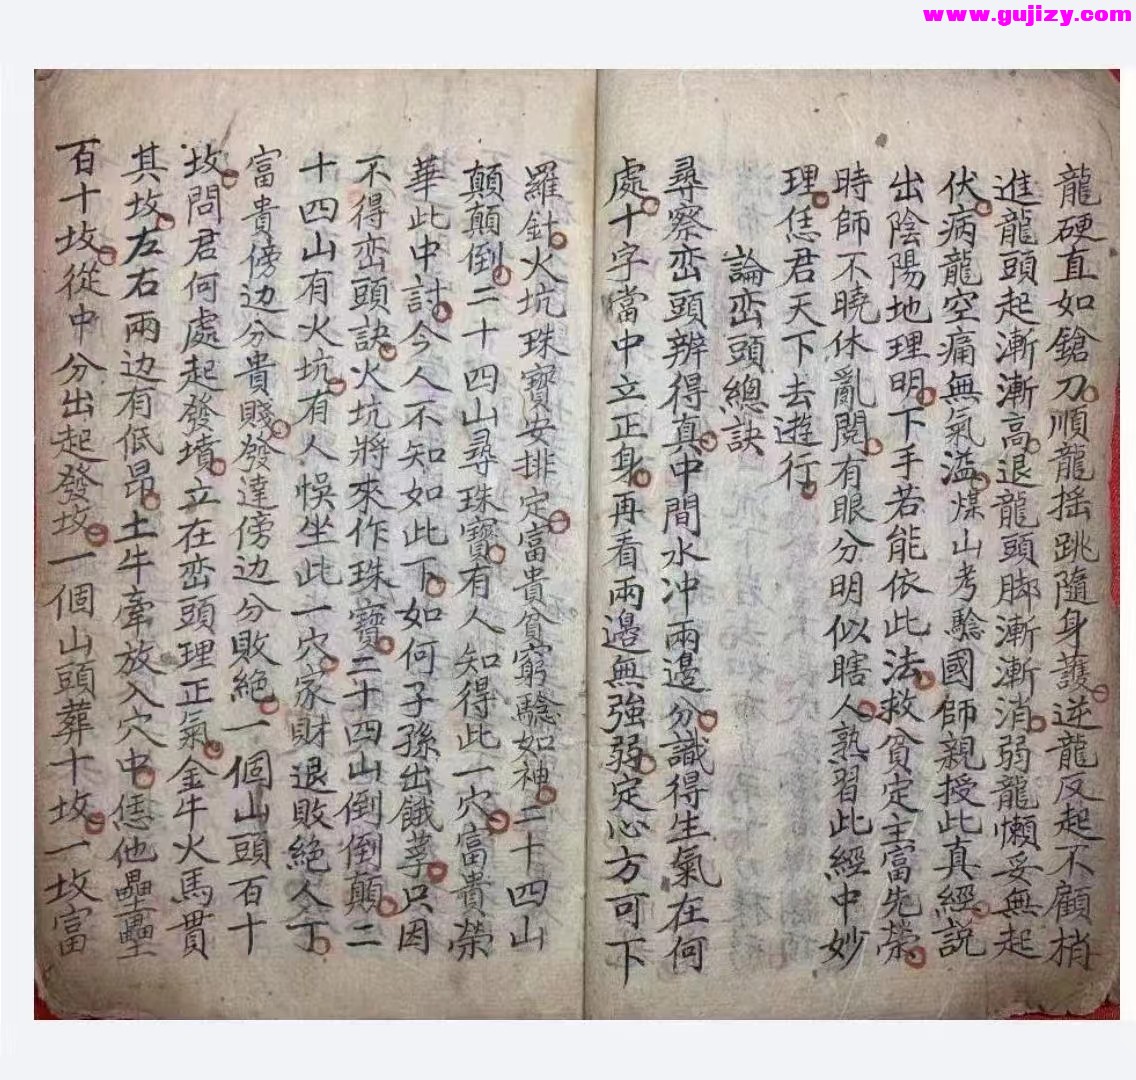 www.gujizy.com
龍硬直如鎗刀順龍搖跳隨身護逆龍反起不顧梢
進龍頭起漸漸高退龍頭脚漸漸消弱龍懶妥無起
伏病龍空痛無氣溢煤山考騐國師親授此真經説
出陰陽地理明下手若能依此法救貧定主富先榮
時師不曉休亂閱有眼分明似瞎人熟習此經中妙
理恁君天下去遊行
論峦頭總訣
尋察峦頭辨得真中間水冲兩邊分識得生氣在何
處十字當中立正身再看兩邊無強弱定心方可下
羅針火坑珠寶安排定富貴貧窮騐如神二十四山
顛顛倒二十四山尋珠寶有人知得此一穴富貴榮
華此中討今人不知如此下如何子孫出餓莩只因
不得峦頭訣火坑將來作珠寶二十四山倒倒顛二
十四山有火坑有人悞坐此一穴家財退敗絕人丁
富貴傍边分貴賤發達傍边分敗絕一個山頭百十
坟問君何處起發墳立在峦頭理正氣金牛火馬貫
其坟左右兩边有低昂土牛牽放入穴中恁他壘壘
百十坟從中分出起發坟一個山頭葬十坟一坟富